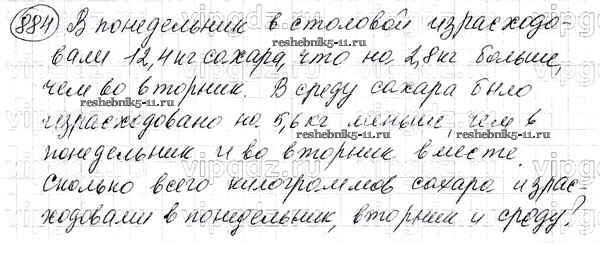 884) В понедельник в столовой израсходо-
вали 12,4 кг сахара, что на 2,8 кг больше,
reshebnik5-11.ru
чем во вторник. В среду сахара было
reshebnik5-11.ru
израсходовано на 5,6 кг меньше чем в
reshebnik5-11.ru
понедельник и во вторник вместе.
Сколько всего килограммов сахара израс-
ходовали в понедельник, вторник и среду?